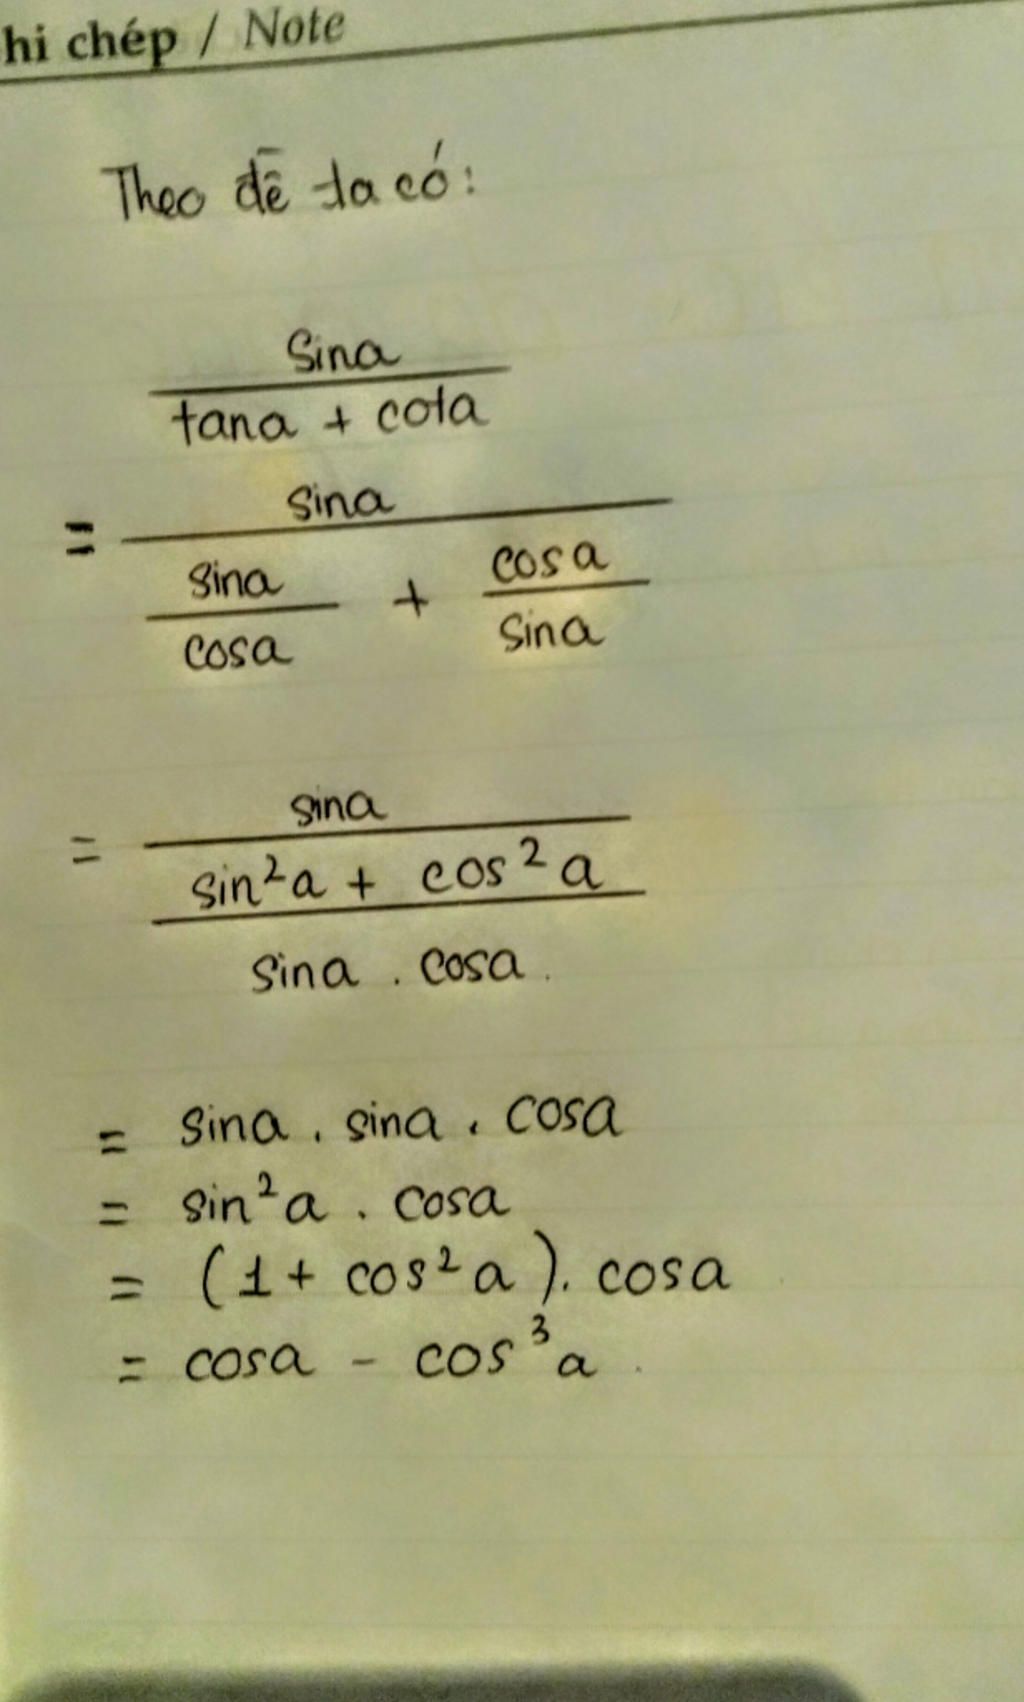 hi chép / Note
Theo đề ta có:
sina
tana + cota
= sina
sina + cosa
cosa sina
= sina
sin²a + cos²a
sina . cosa.
= sina . sina . cosa
= sin²a . cosa
= (1 + cos²a). cosa
= cosa - cos³a.